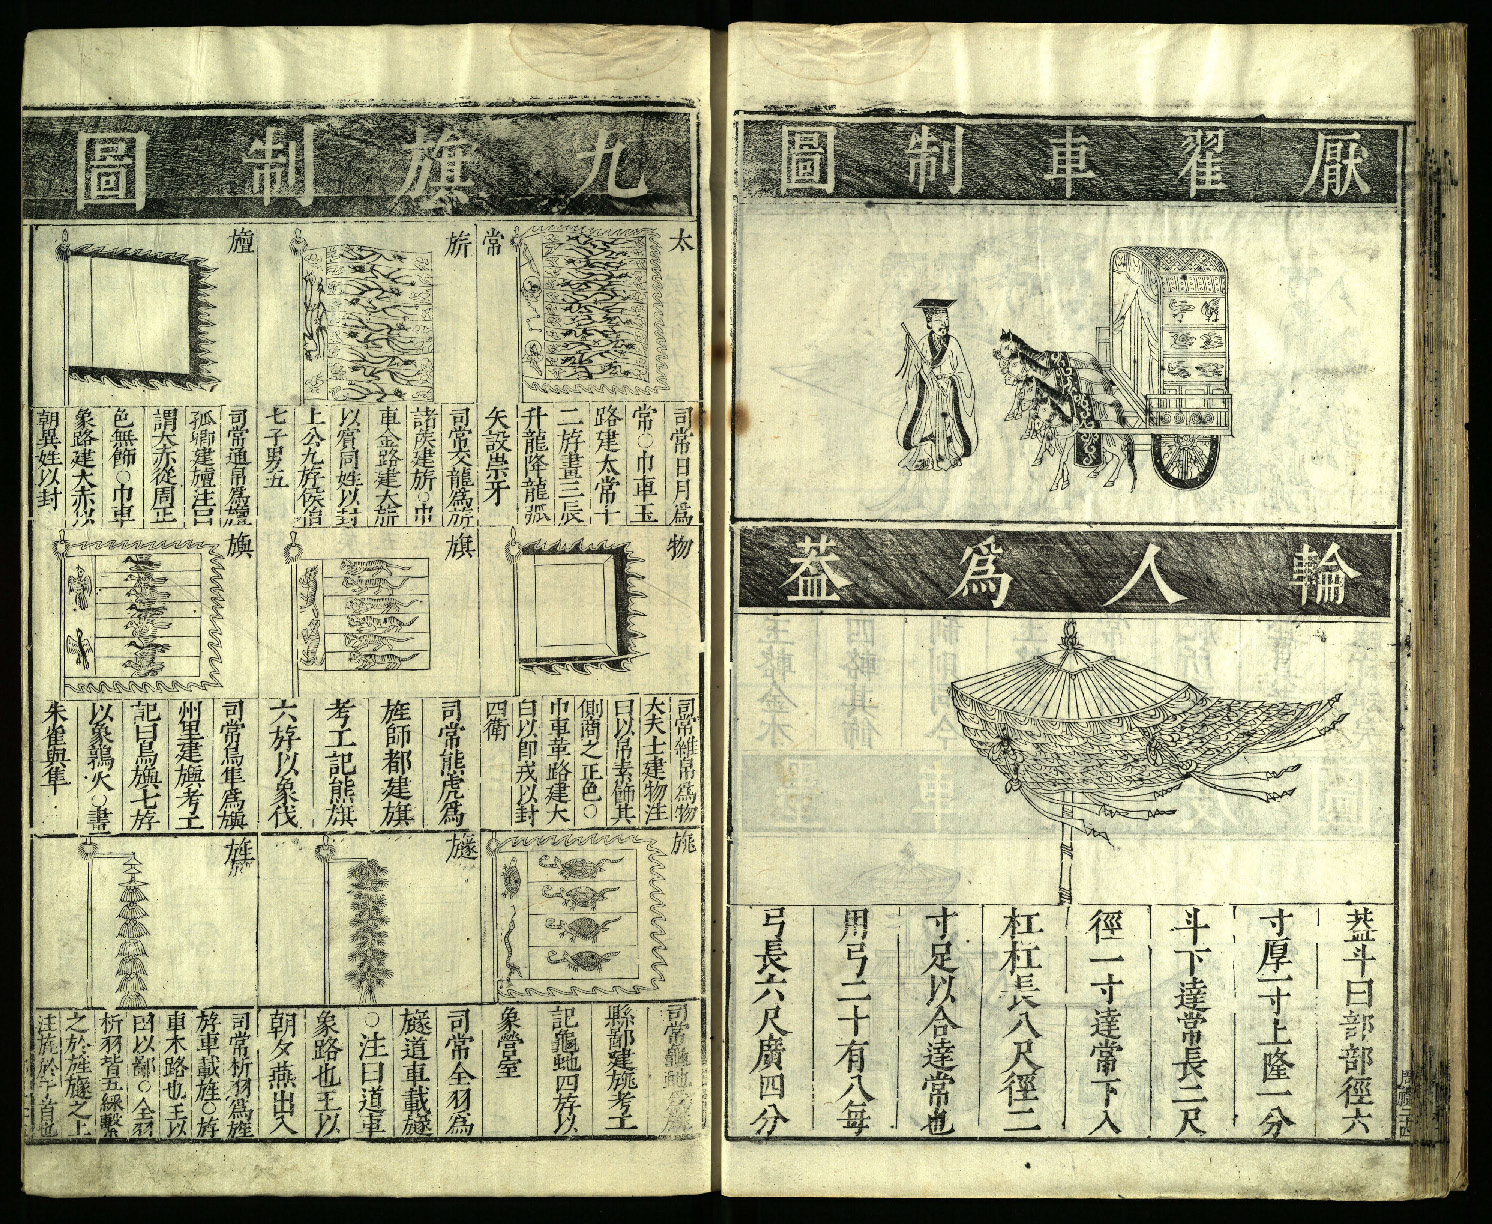 厭翟車制圖
輪人爲蓋
蓋斗曰部部徑六
寸厚一寸上隆一分
斗下達常長二尺
徑一寸達常下入
杠杠長八尺徑二
寸足以合達常也
用弓二十有八每
弓長六尺廣四分
九旗制圖
太常
司常日月爲
常○巾車玉
路建太常十
二斿畫三辰
升龍降龍弧
矢設崇牙
旂
司常交龍爲旂
諸矦建旂○巾
車金路建大旂
以賓同姓以封
上公九斿侯伯
七子男五
旜
司常通帛爲旜
孤卿建旜注曰
謂大赤從周正
色無飾○巾車
象路建大赤以
朝異姓以封
物
司常雜帛爲物
大夫士建物注
曰以帛素飾其
側商之正色○
巾車革路建大
白以即戎以封
四衛
旗
司常熊虎爲
旗師都建旗
考工記熊旗
六斿以象伐
旟
司常鳥隼爲旟
州里建旟考工
記曰鳥旟七斿
以象鶉火○畫
朱雀與隼
旐
司常龜蛇爲旐
縣鄙建旐考工
記龜蛇四斿以
象營室
旞
司常全羽爲
旞道車載旞
○注曰道車
象路也王以
朝夕燕出入
旌
司常析羽爲旌
斿車載旌○斿
車木路也王以
田以鄙○全羽
析羽皆五綵繫
之於旌旞之上
注旄於干首也